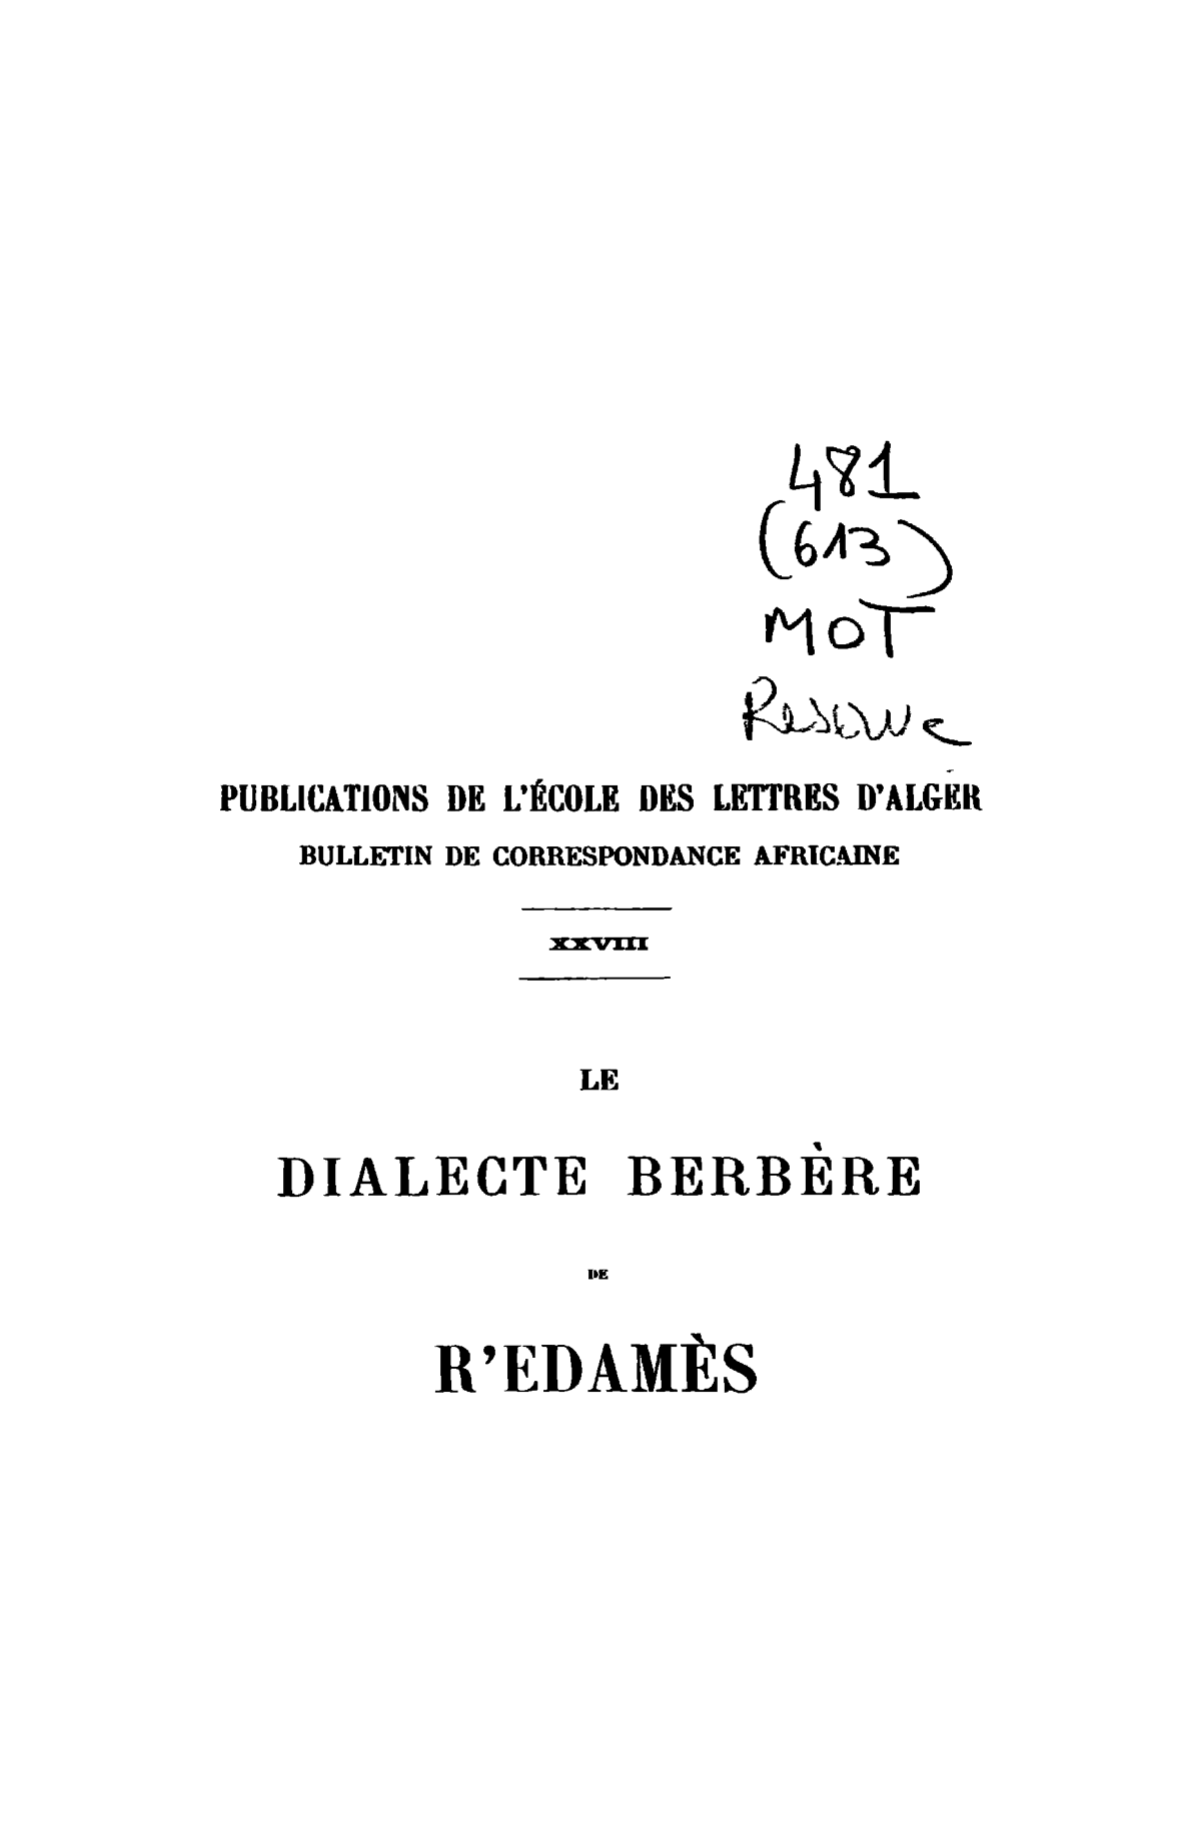 481
(613)
MOT
Reserve
PUBLICATIONS DE L'ÉCOLE DES LETTRES D'ALGER
BULLETIN DE CORRESPONDANCE AFRICAINE
XXVIII
LE
DIALECTE BERBÈRE
DE
R'EDAMÈS